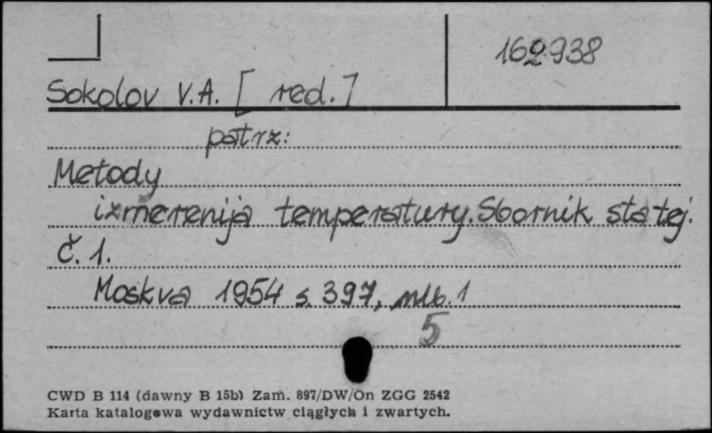 162938
Sokolov V.A. [red.]
patrz:
Metody
izmerenija temperatury. Sbornik statej.
č. 1.
Moskva 1954 s. 397, nlb. 1
5
CWD B 114 (dawny B 15b) Zam. 897/DW/On ZGG 2542
Karta katalogowa wydawnictw ciągłych i zwartych.